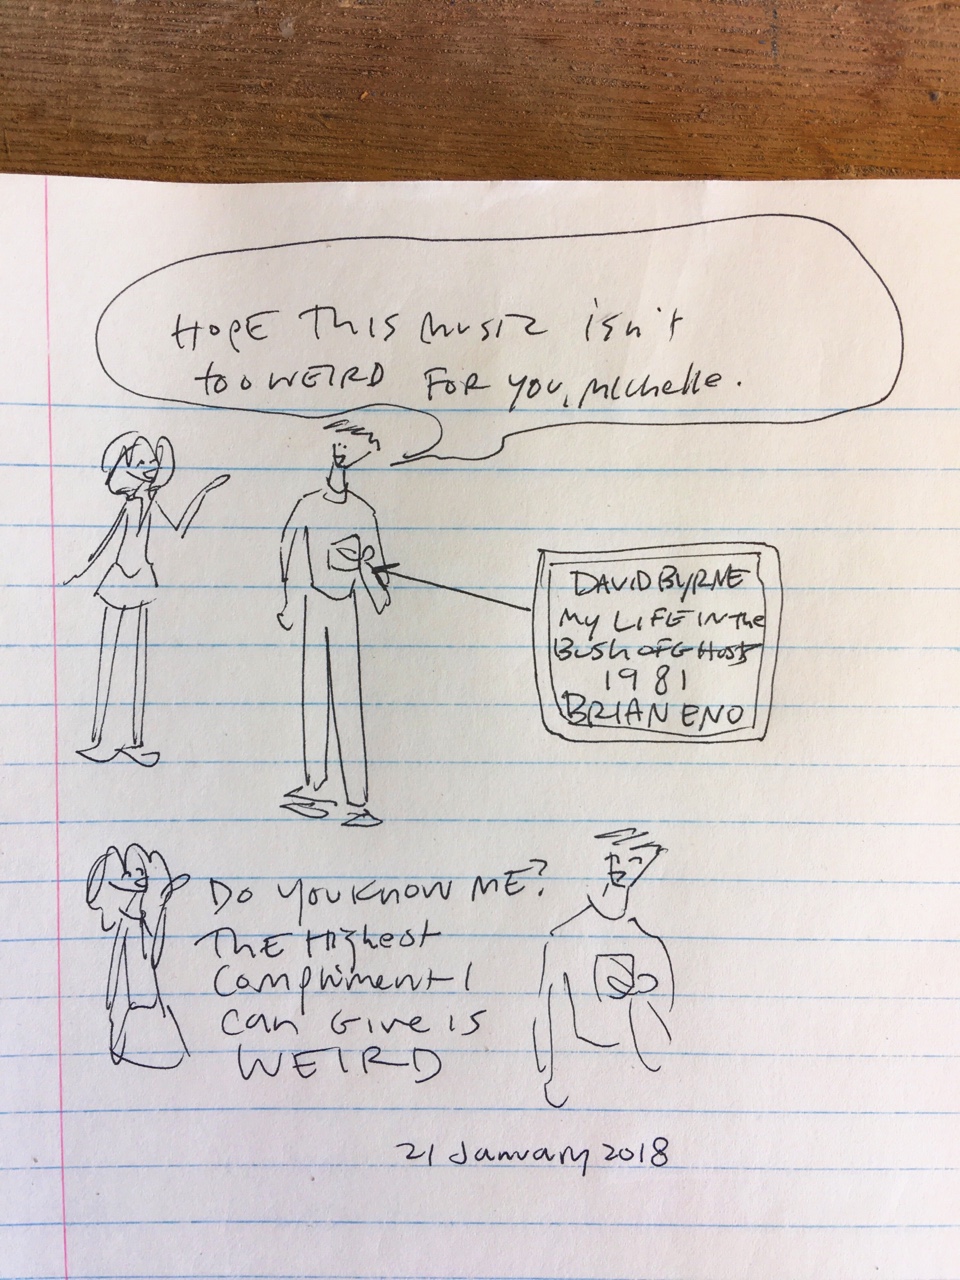 HOPE THIS MUSIC isn't
too WEIRD FOR YOU, MICHELLE.
DAVID BYRNE
MY LIFE IN THE
BUSH OF GHOSTS
1981
BRIAN ENO
DO YOU KNOW ME?
THE HIGHEST
COMPLIMENT I
CAN GIVE IS
WEIRD
21 January 2018